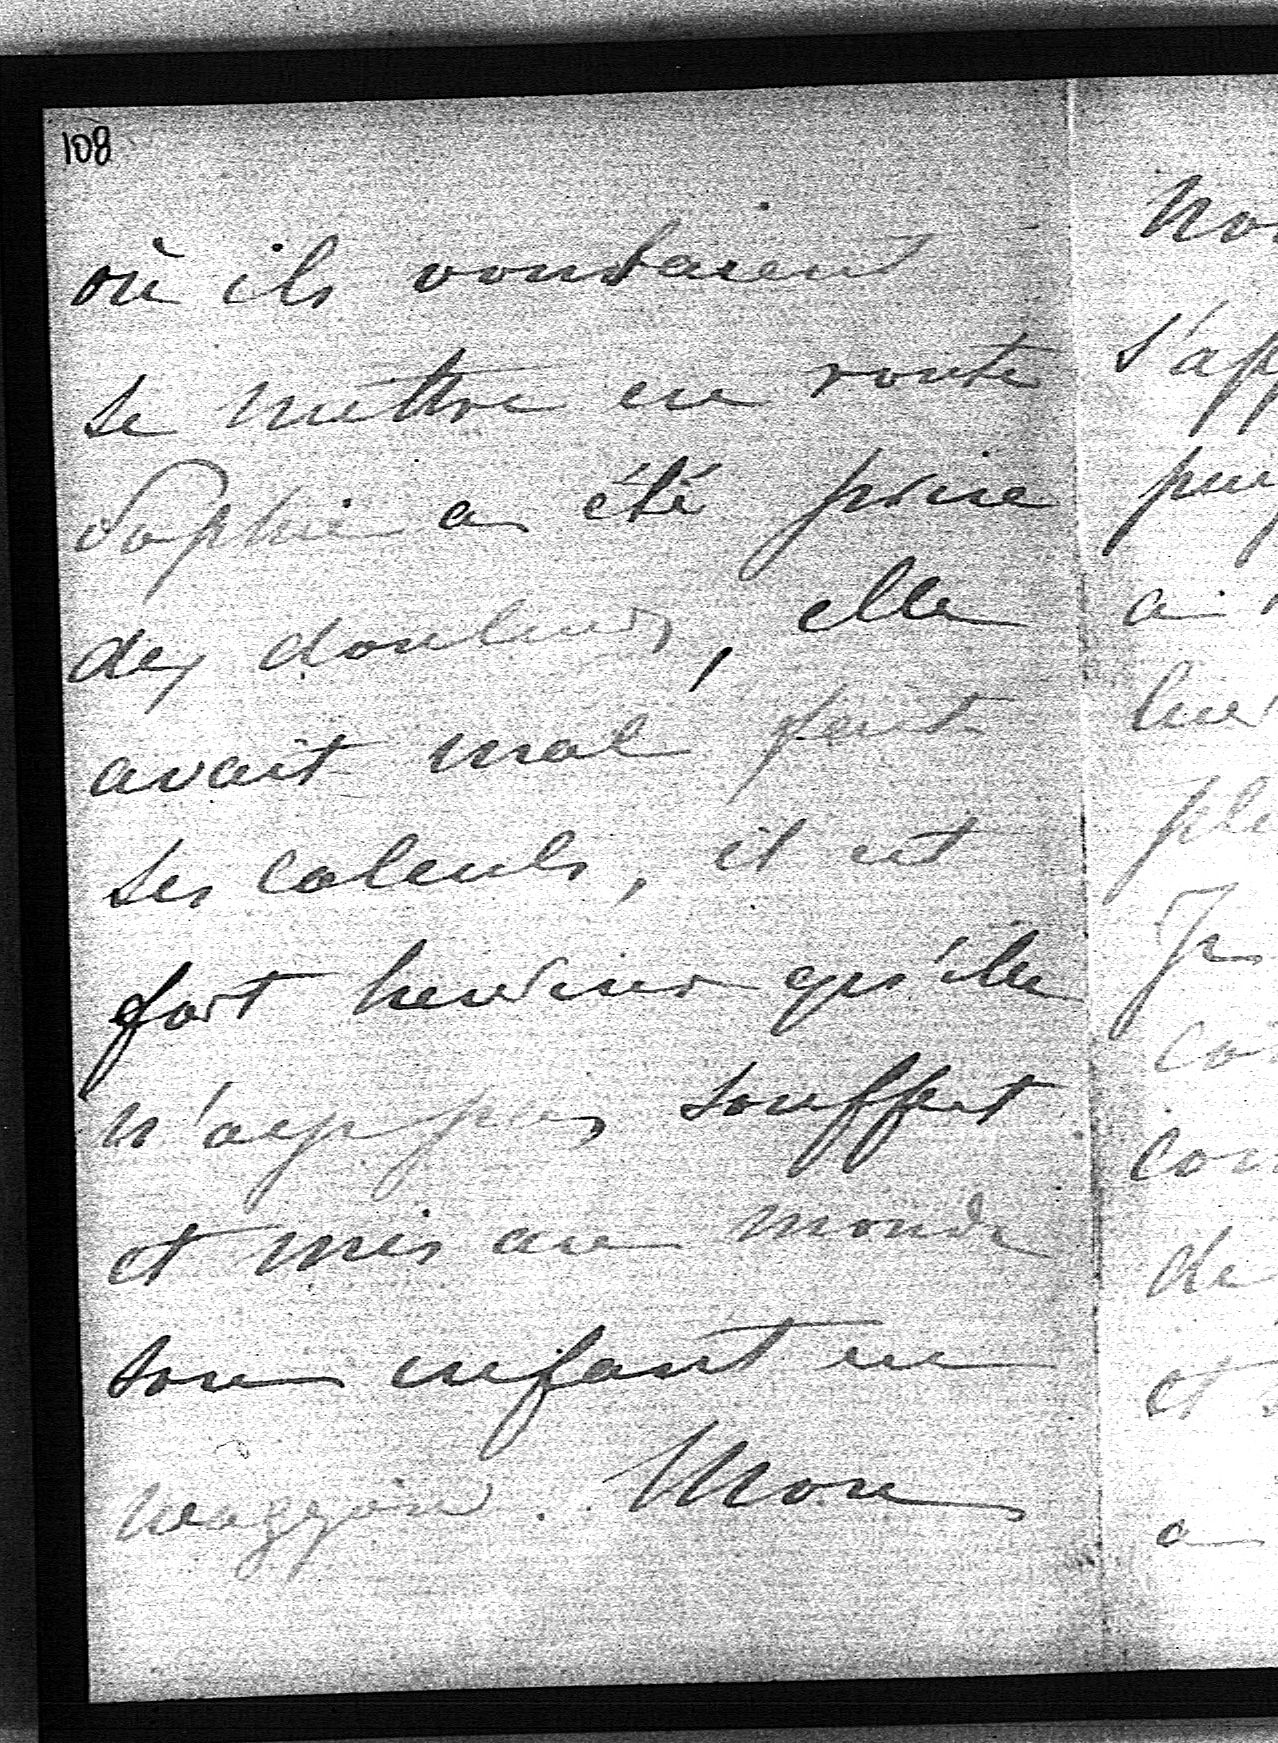 108
où ils voulaient
se mettre en route
Sophie a été prise
des douleurs, elle
avait mal fait
ses calculs, il est
fort heureux qu'elle
n'ait pas souffert
et mis au monde
son enfant en
waggon. Mon
s'app
a
de
et
a